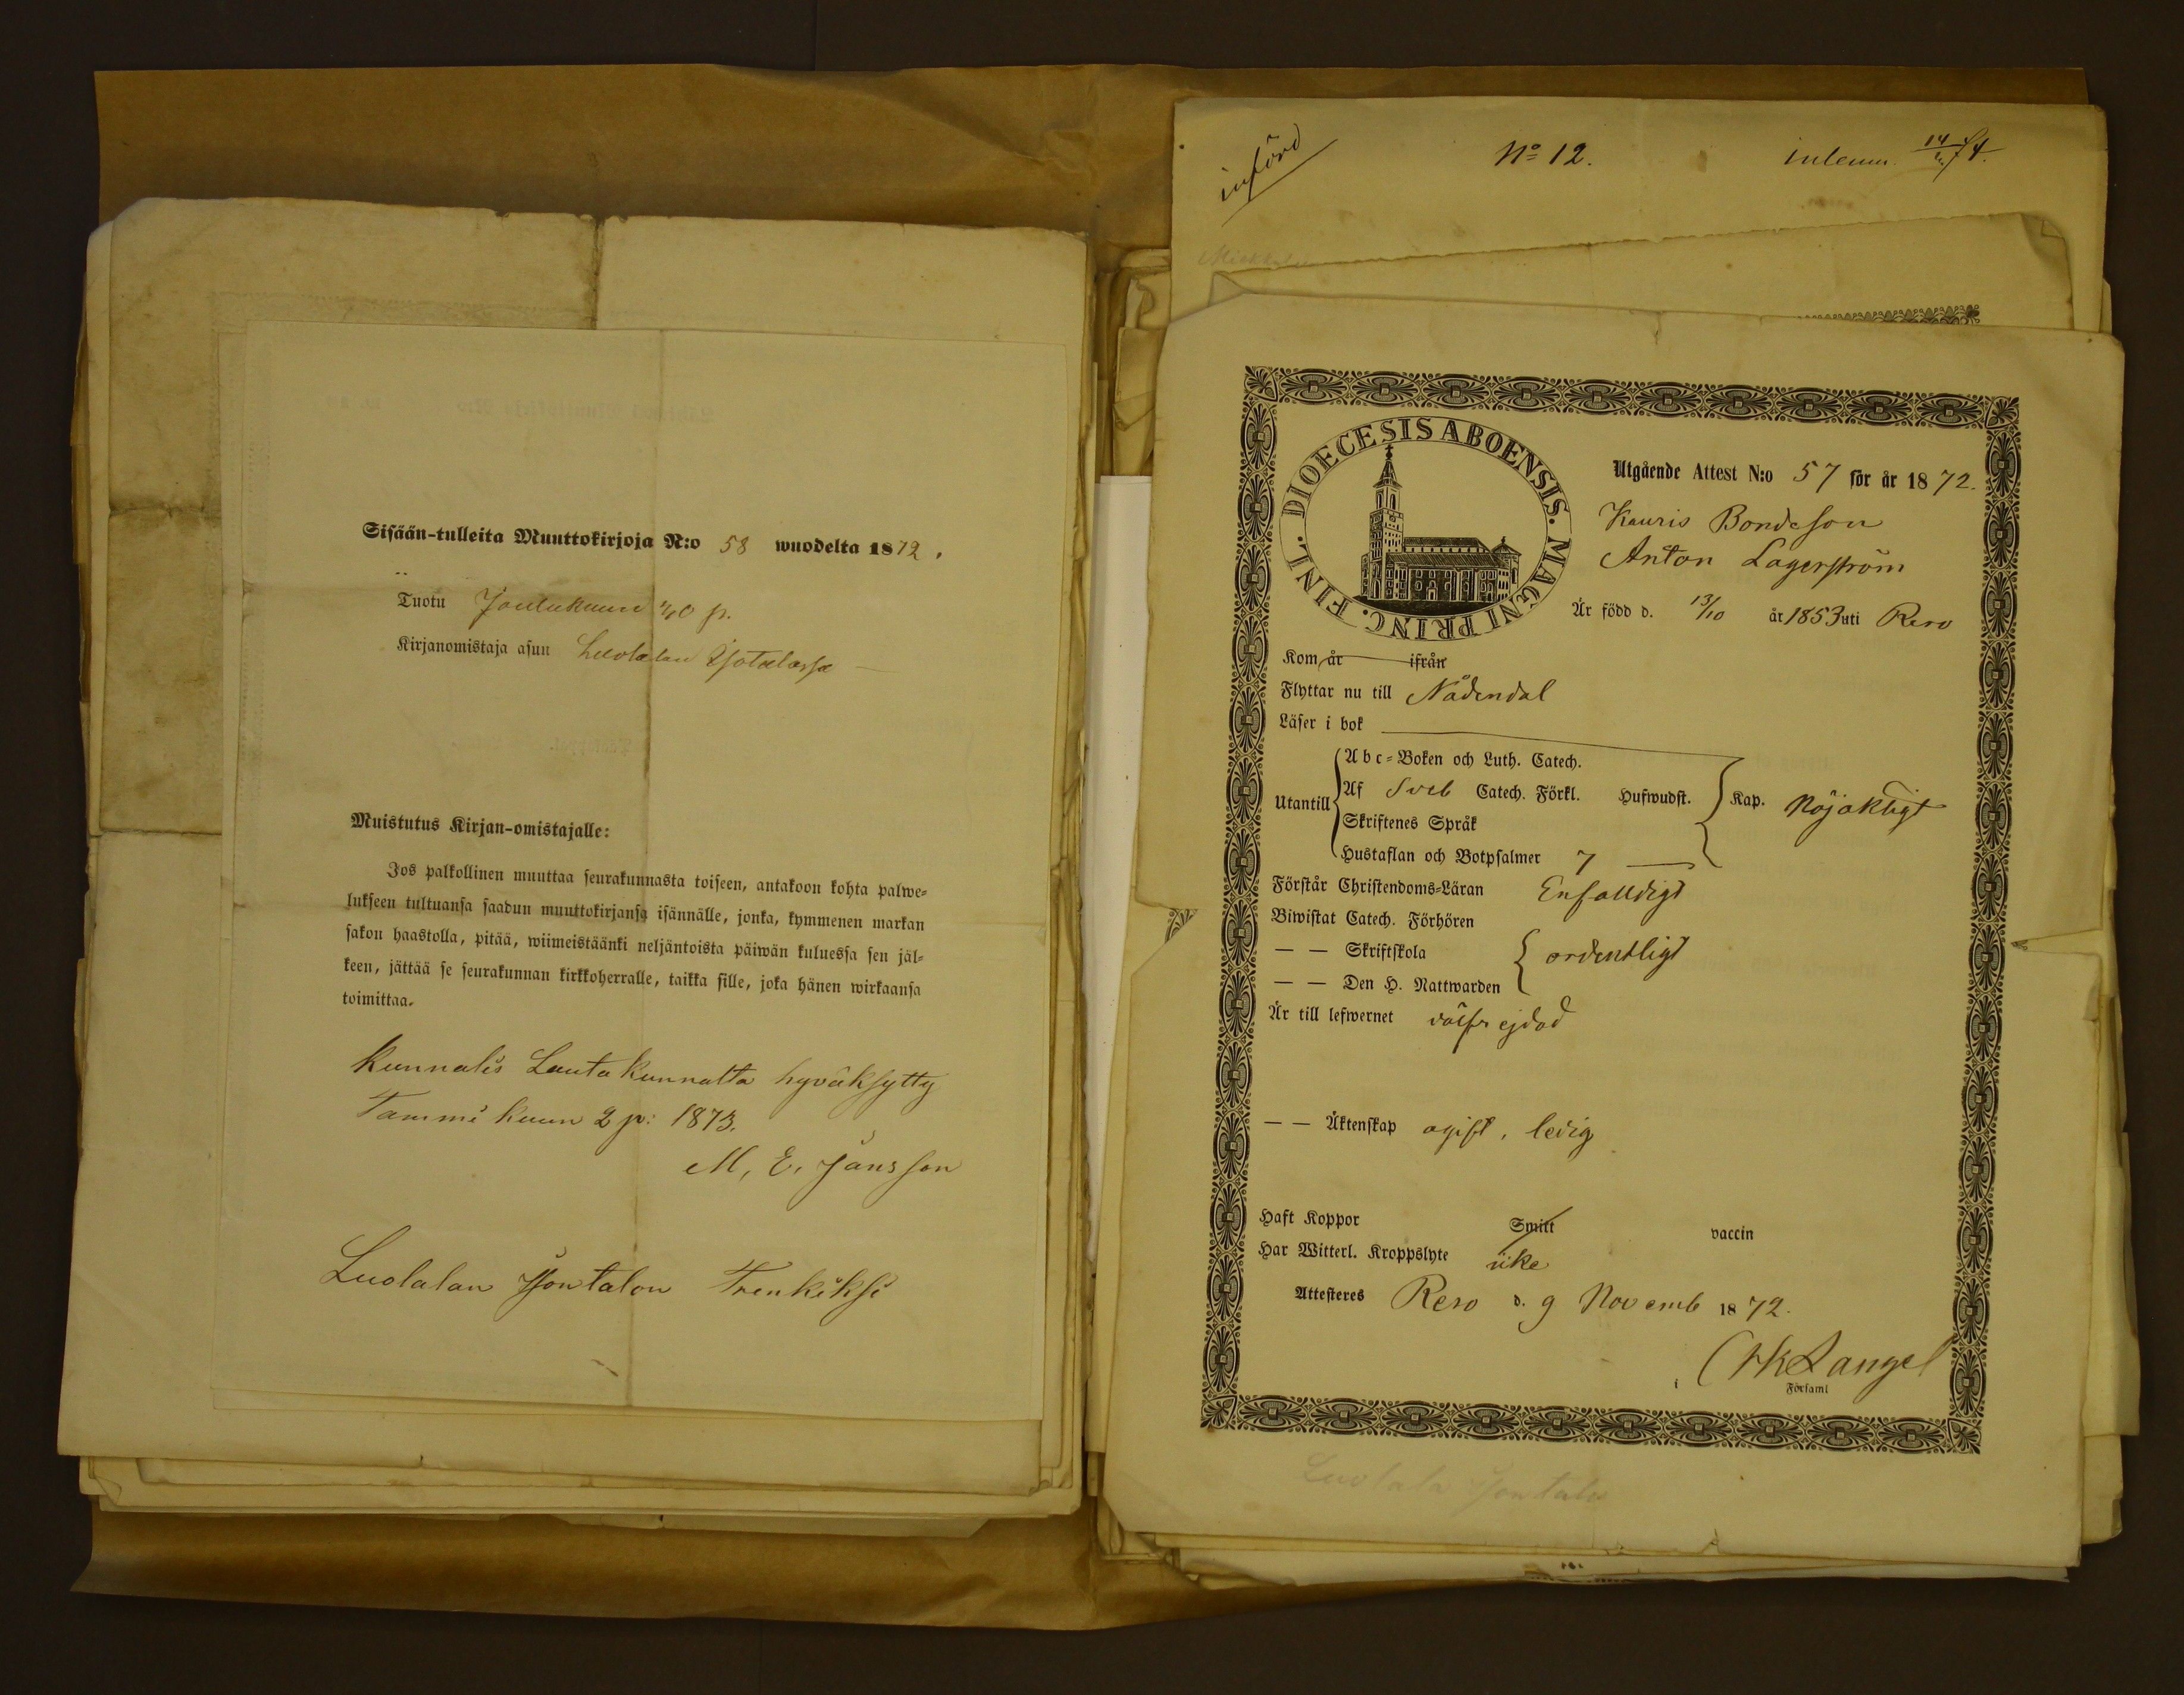 Sisään-tulleita Muuttokirjoja N:o 58 wuodelta 1872.
Tuotu Joulukuun p.
Kirjanomistaja asuu Luolalan
Muistutus Kirjan-omistajalle:
Jos palkollinen muuttaa seurakunnasta toiseen, antakoon kohta palwe-
lukseen tultuansa saadun muuttokirjansa isännälle, jonka, kymmenen markan
sakon haastolla, pitää, wiimeistäänki neljäntoista päiwän kuluessa sen jäl-
keen, jättää se seurakunnan kirkkoherralle, taikka sille, joka hänen wirkaansa
toimittaa.
Kunnalis Lautakunnalta hyväksytty
Tammikuun 2 p: 1873.
M. E. Jansson
Luolalan Isontalon Trenkiksi
införd
No 12.
DIOECESIS ABOENSIS. MAGNI PRINC. FINL.
Utgående Attest N:o 57 för år 1872.
Kauris Bondeson
Anton Lagerström
Är född d. 13/10 år 1853 uti Reso
Kom år ifrån
Flyttar nu till Nådendal
Läser i bok
Utantill
Abc-Boken och Luth. Catech.
Af Sveb Catech. Förkl. Hufwudst. Kap. Nöjaktigt
Skriftenes Språk
Hustaflan och Botpsalmer 7
Förstår Christendoms-Läran Enfalldigt
Biwistat Catech. Förhören
— — Skriftskola ordentligt
— — Den H. Nattwarden
Är till lefwernet välfrejdad
— — Äktenskap ogift, ledig
Haft Koppor Smitt vaccin
Har Witterl. Kroppslyte icke
Attesteres Reso d. 9 Novemb 1872.
Langel
Församl
Luolala Isontalo